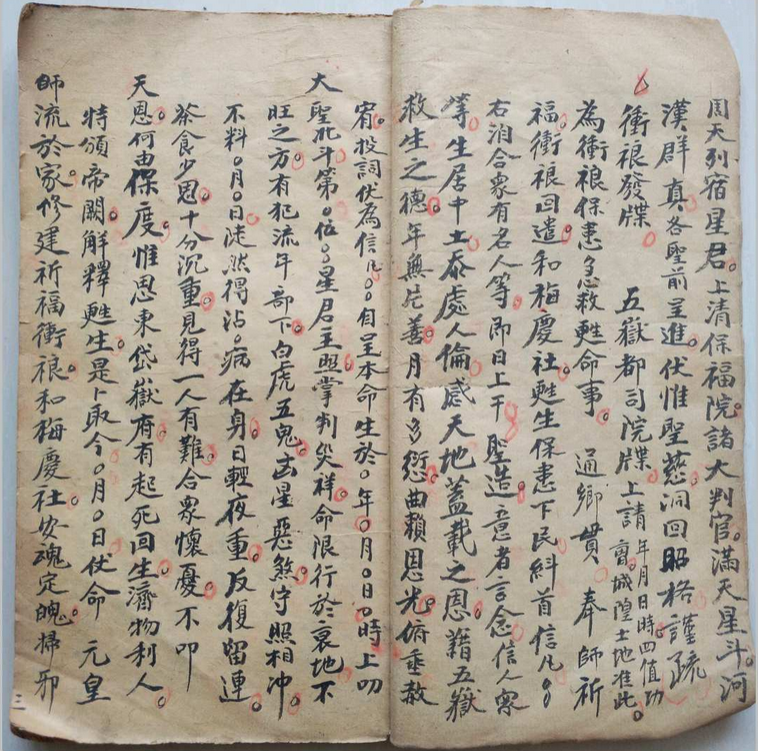 周天列宿星君。上清保福院諸大判官。滿天星斗。河
漢群真各聖前呈進。伏惟聖慈洞回昭格謹疏
衝狼發牒。 五嶽都司院牒上請 年月日時四值功 城隍土地准此。
為衝狼保患急救甦命事。 通鄉貫 奉師祈
福。衝狼回遣和梅慶社。甦生保患下民糾首信凡〇〇
右洎合眾有名人等。即日上干 聖造。意者言念信人眾
等。生居中土。忝處人倫。感天地蓋載之恩。藉五嶽
救生之德。年無片善。月有多愆。曲賴恩光。俯垂赦
宥。投詞伏為信凡〇〇自呈本命生於〇年〇月〇日〇時上叩
大聖北斗第〇位〇星君主照掌判災祥命限行於衰地不
旺之方。有犯流年 部下白虎五鬼凶星惡煞守照相冲。
不料〇月〇日陡然得沾。病在身。日輕夜重。反復留連。
茶食少思。十分沉重。見得一人有難。合眾懷憂。不叩
天恩。何由保度。惟思東岱嶽府。有起死回生。濟物利人。
特頒帝闕。解釋甦生。是卜取今〇月〇日仗命 元皇
師流於家。修建祈福衝狼。和梅慶社。安魂定魄。掃邪
三